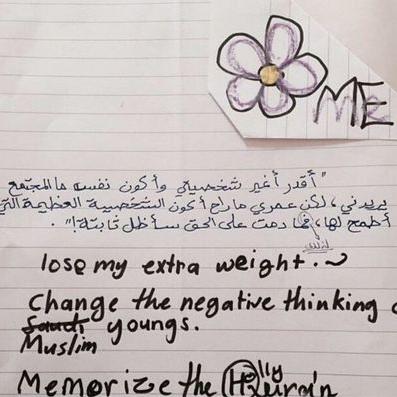 ME
"أقدر أغير شخصيتي وأكون نفس ما المجتمع
يريدني، لكن عمري ما راح أكون الشخصية العظيمة التي
أطمح لها، فما دمت على الحق سأظل ثابتة!".
lose my extra weight.
Change the negative thinking
Saudi youngs.
Muslim
Memorize the Holly Qura'n